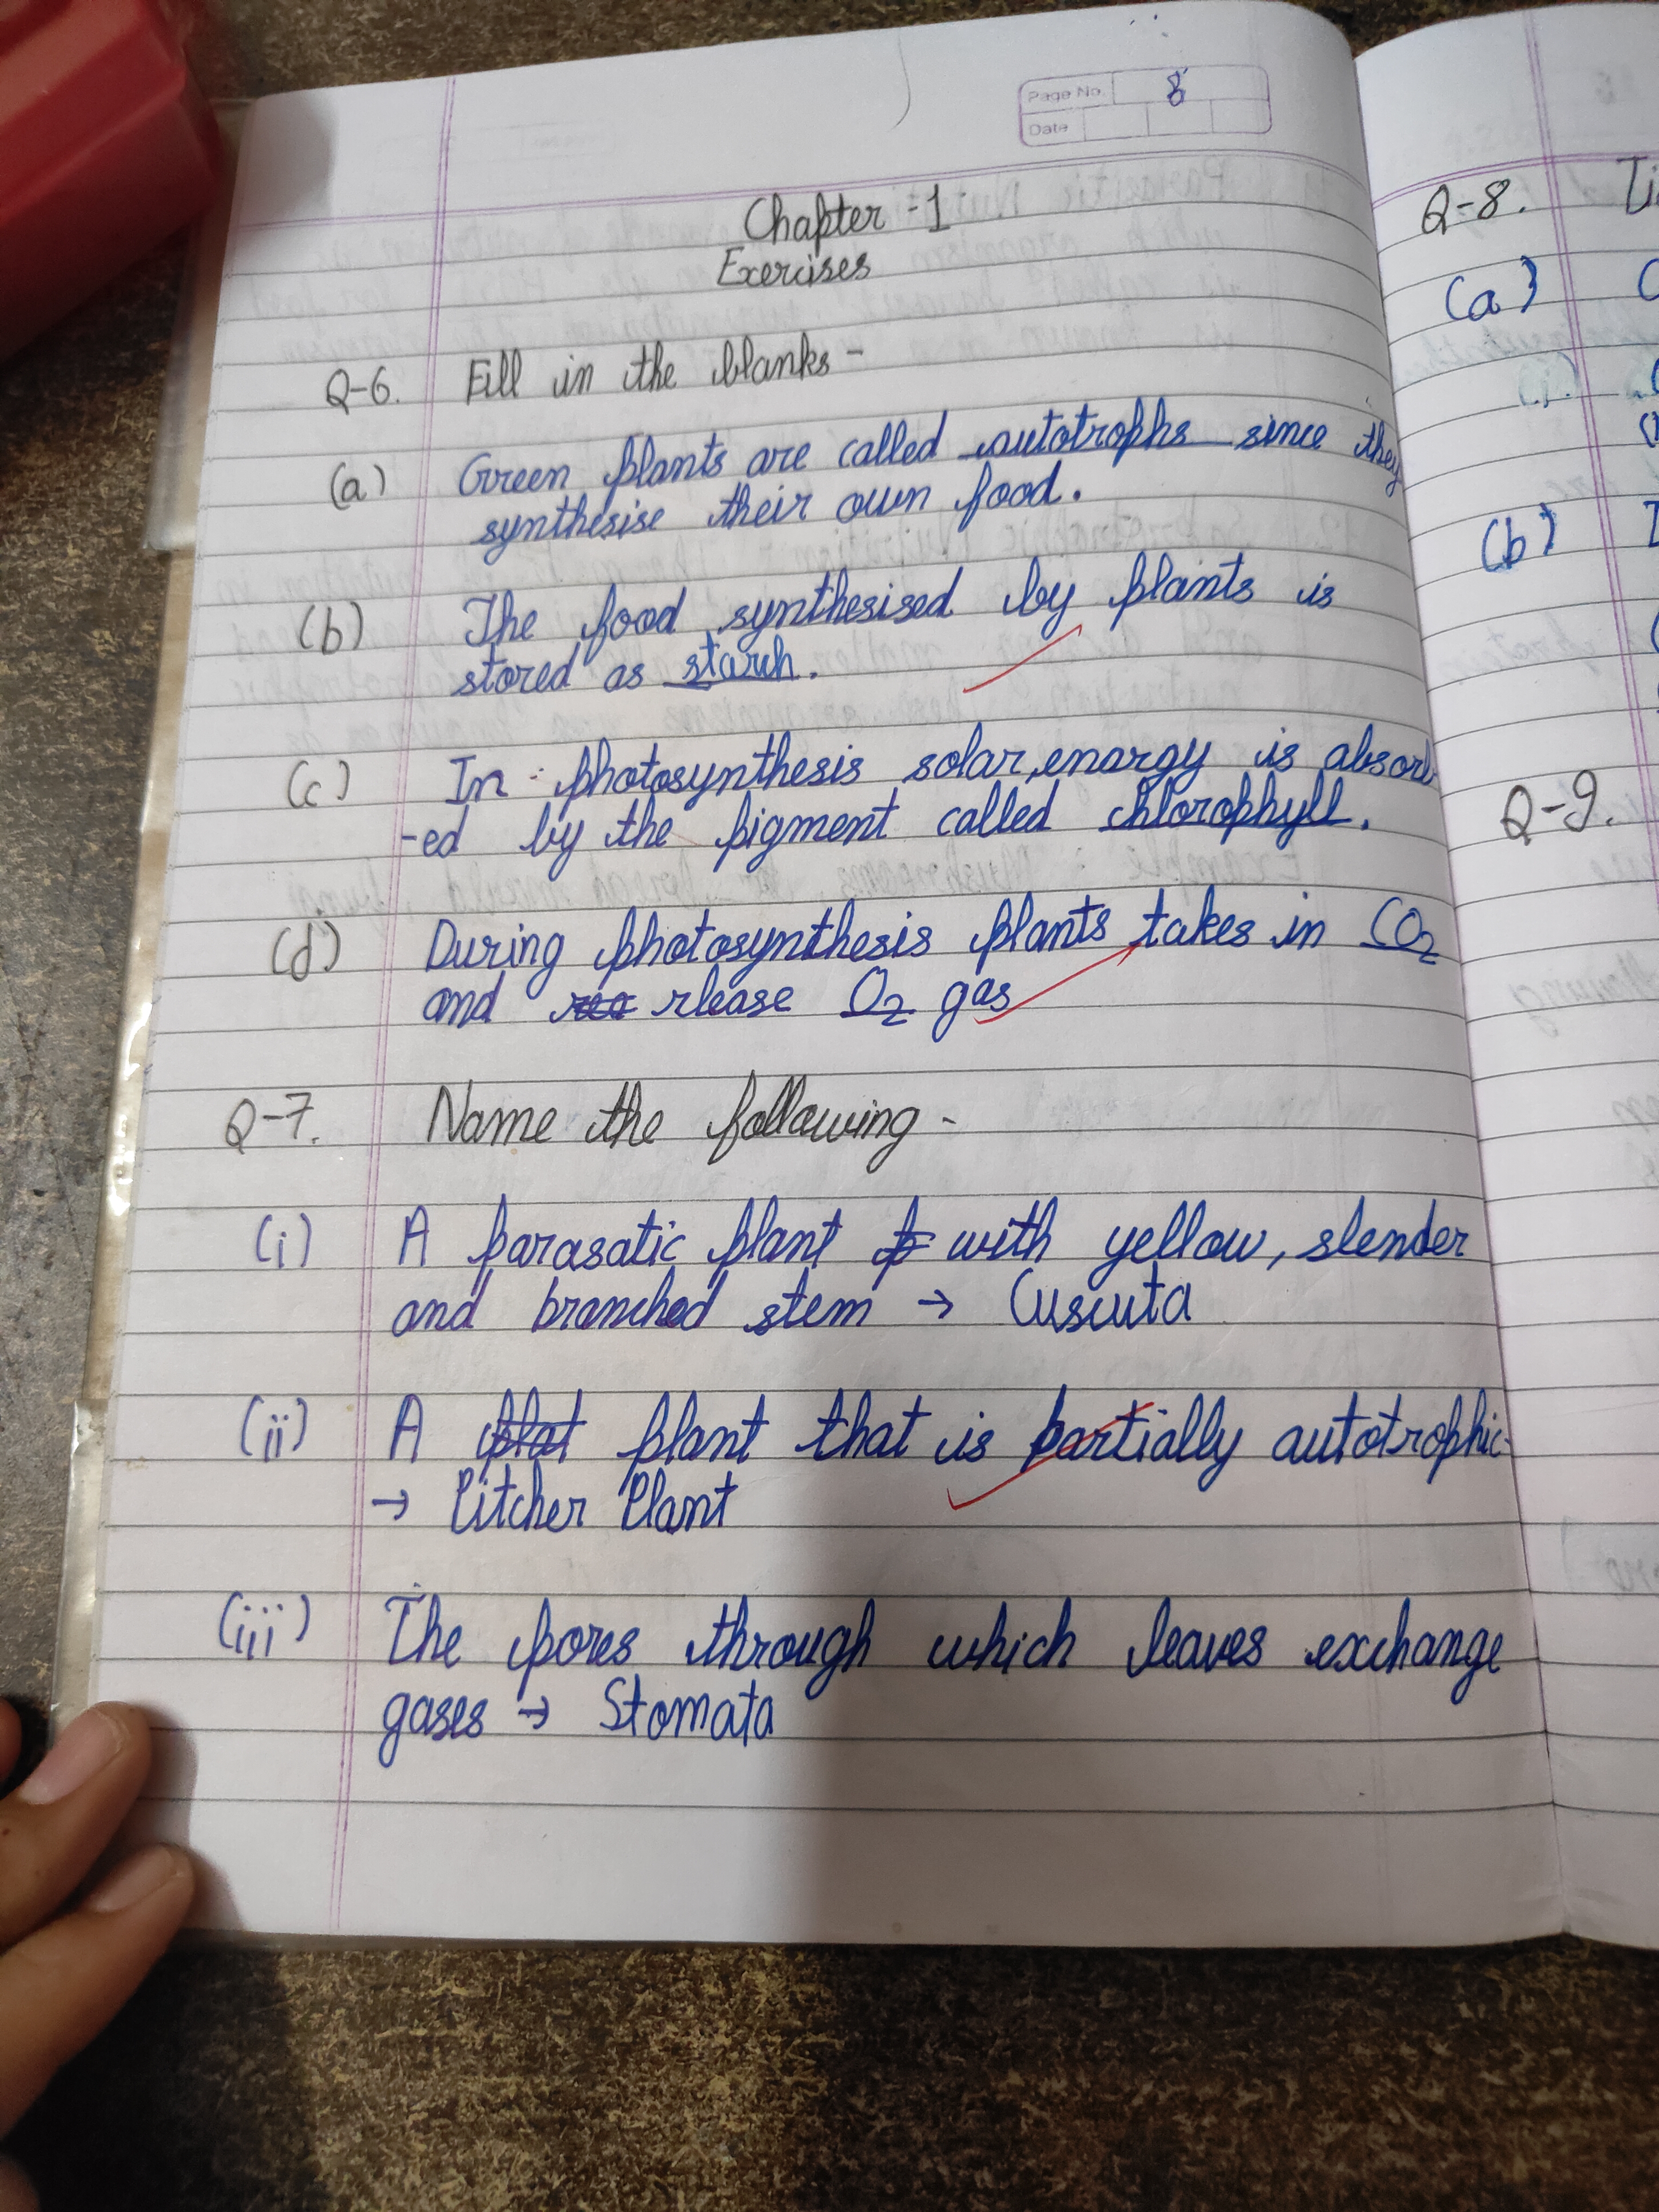 Page No. 8
Date
Chapter - 1
Exercises
Q-6. Fill in the blanks -
(a) Green plants are called autotrophs since they
synthesise their own food.
(b) The food synthesised by plants is
stored as starch.
(c) In photosynthesis solar, energy is absorb
-ed by the pigment called chlorophyll.
(d) During photosynthesis plants takes in CO2
and rlease O2 gas
Q-7. Name the following -
(i) A parasatic plant with yellow, slender
and branched stem → Cuscuta
(ii) A plant that is partially autotrophic-
→ Pitcher Plant
(iii) The pores through which leaves exchange
gases → Stomata
Q-8.
(a)
(b)
Q-9.